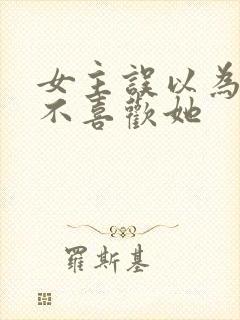 女主誤以為
不喜歡她
羅斯基